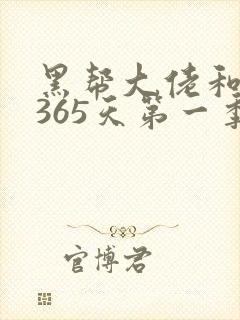 黑帮大佬和
365天第一季
官博君